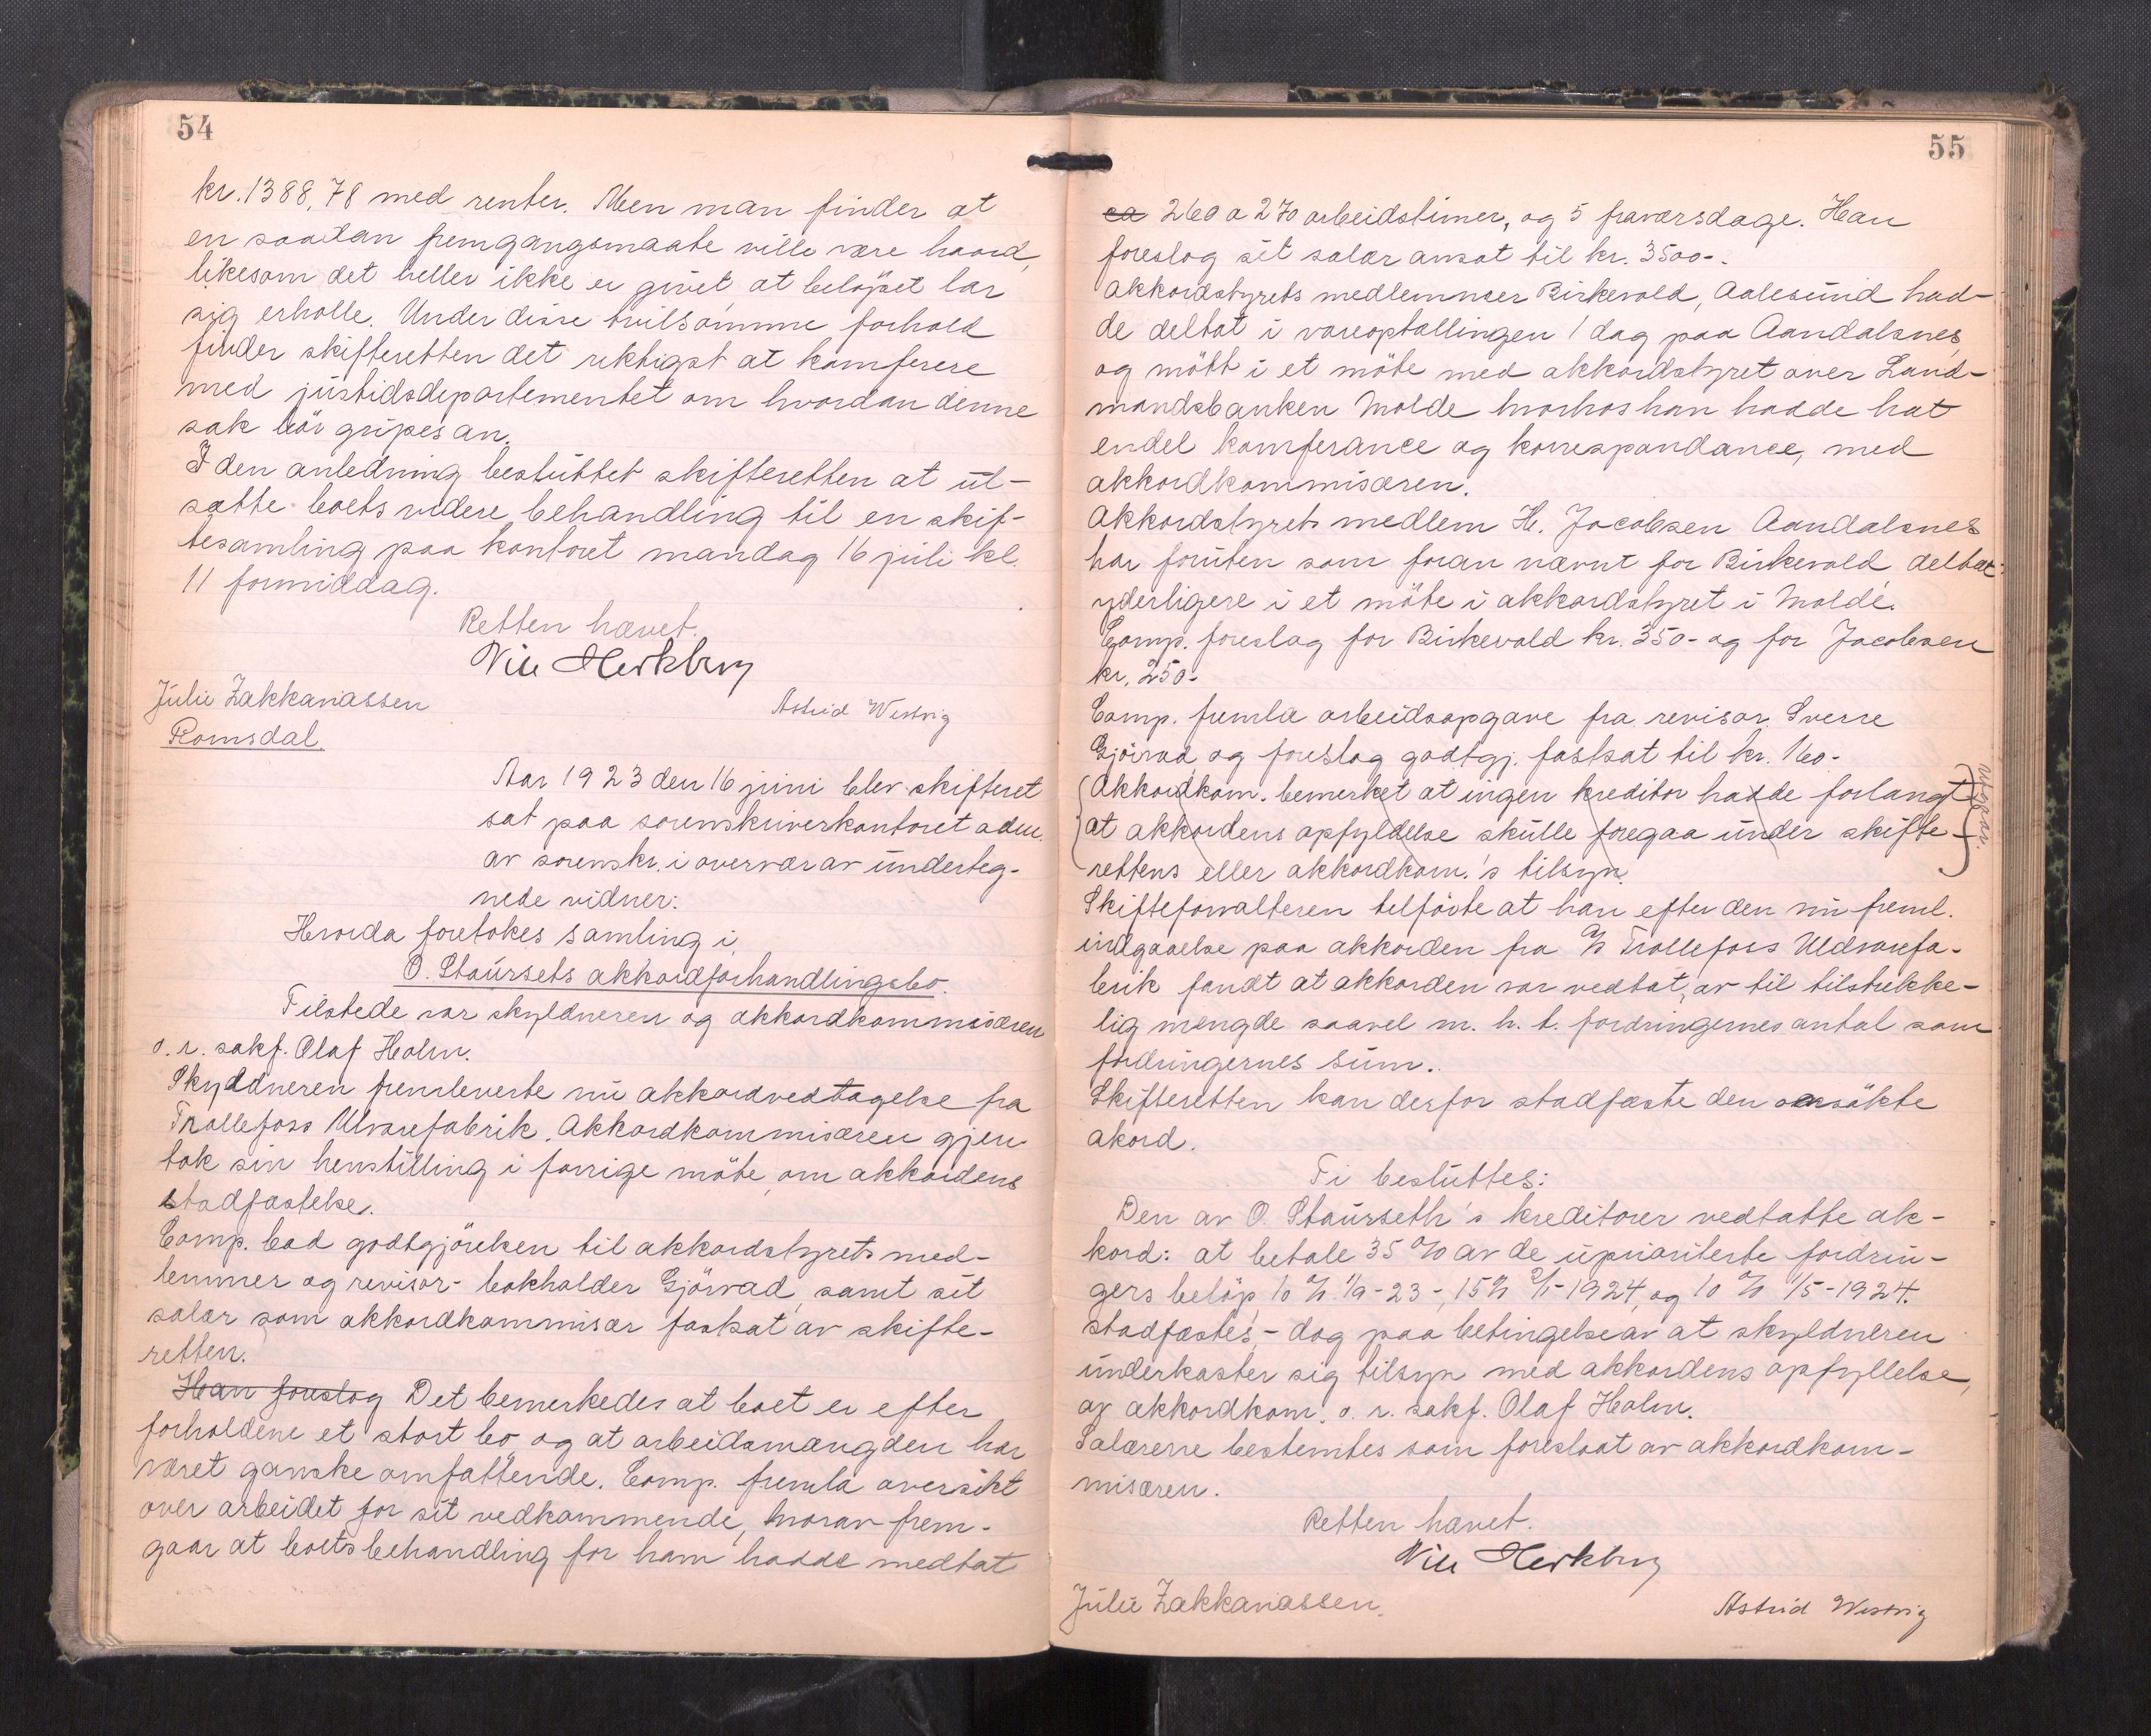 54
kr. 1388,78 med renter. Men man finder at
en saadan fremgangsmaate ville være haard,
likesom det heller ikke er givet at beløpet lar
sig erholle. Under disse tvilsomme forhold
finder skifteretten det riktigst at komferere
med justidsdepartementet om hvordan denne
sak bör gripes an.
I den anledning besluttet skifteretten at ut-
sætte boets videre behandling til en skif-
tesamling paa kontoret mandag 16 juli kl.
11 formiddag.
Retten hævet.
Julie Zakkariassen
Astrid Westvig
Romsdal.
Aar 1923 den 16 juni blev skifteret
sat paa sorenskriverkontoret adm.
av sorenskr. i overvær av underteg-
nede vidner:
Hvorda foretokes samling i
O. Staursets akkordforhandlingsbo.
Tilstede var skyldneren og akkordkommisæren
o. r. sakf. Olaf Holm.
Skyldneren fremleverte nu akkordvedtagelse fra
Trollefoss Ulvarefabrik. Akkordkommisæren gjen-
tok sin henstilling i forrige möte, om akkordens
stadfæstelse.
Comp. bad godtgjörelsen til akkordstyrets med-
lemmer og revisor- bokholder Gjörvad, samt sit
salær som akkordkommisær fastsat av skifte-
retten.
Han foreslog Det bemerkedes at boet er efter
forholdene et stort bo, og at arbeidsmængden har
været ganske omfattende. Comp. fremla oversikt
over arbeidet for sit vedkommende, hvorav frem-
gaar at boets behandling for ham hadde medtat
55
ca 260 a 270 arbeidstimer, og 5 fraværsdage. Han
foreslog sit salær ansat til kr. 3500-.
Akkordstyrets medlemmer Birkevold, Aalesund had-
de deltat i vareoptællingen 1 dag paa Aandalsnes,
og mött i et möte med akkordstyret over Land-
mandsbanken Molde hvorhos han hadde hat
endel komferance og korrespondance, med
akkordkommisæren.
Akkordstyrets medlem H. Jacobsen Aandalsnes
har foruten som foran nævnt for Birkevold, deltat
yderligere i et möte i akkordstyret i Molde.
Comp. foreslog for Birkevold kr. 350- og for Jacobsen
kr. 250-
Comp. fremla arbeidsopgave fra revisor Sverre
Gjörvad, og foreslog godtgj. fastsat til kr. 160-
Akkordkom. bemerket at ingen kreditor hadde forlangt
at akkordens opfyldelse skulle foregaa under skifte-
rettens eller akkordkom.'s tilsyn.
utgaar.
Skifteforvalteren tilföiet at han efter den nu freml.
indgaaelse paa akkorden fra A/S Trollefoss Uldvarefa-
brik fandt at akkorden var vedtat, av til tilstrekke-
lig mengde saavel m. h. t. fordringernes antal som
fordringernes sum.
Skifteretten kan derfor stadfæste den ansökte
akord.
Ti besluttes:
Den av O. Staurseth's kreditorer vedtatte ak-
kord: at betale 35 % av de uprioriterte fordrin-
gers belöp, 10 % 1/9-23-, 15% 2/1-1924, og 10 % 1/5-1924.
stadfæstes, - dog paa betingelse av at skyldneren
underkaster sig tilsyn med akkordens opfyllelse,
av akkordkom. o. r. sakf. Olaf Holm.
Salærerne bestemtes som foreslaat av akkordkom-
misæren.
Retten hævet.
Julie Zakkariassen.
Astrid Westvig